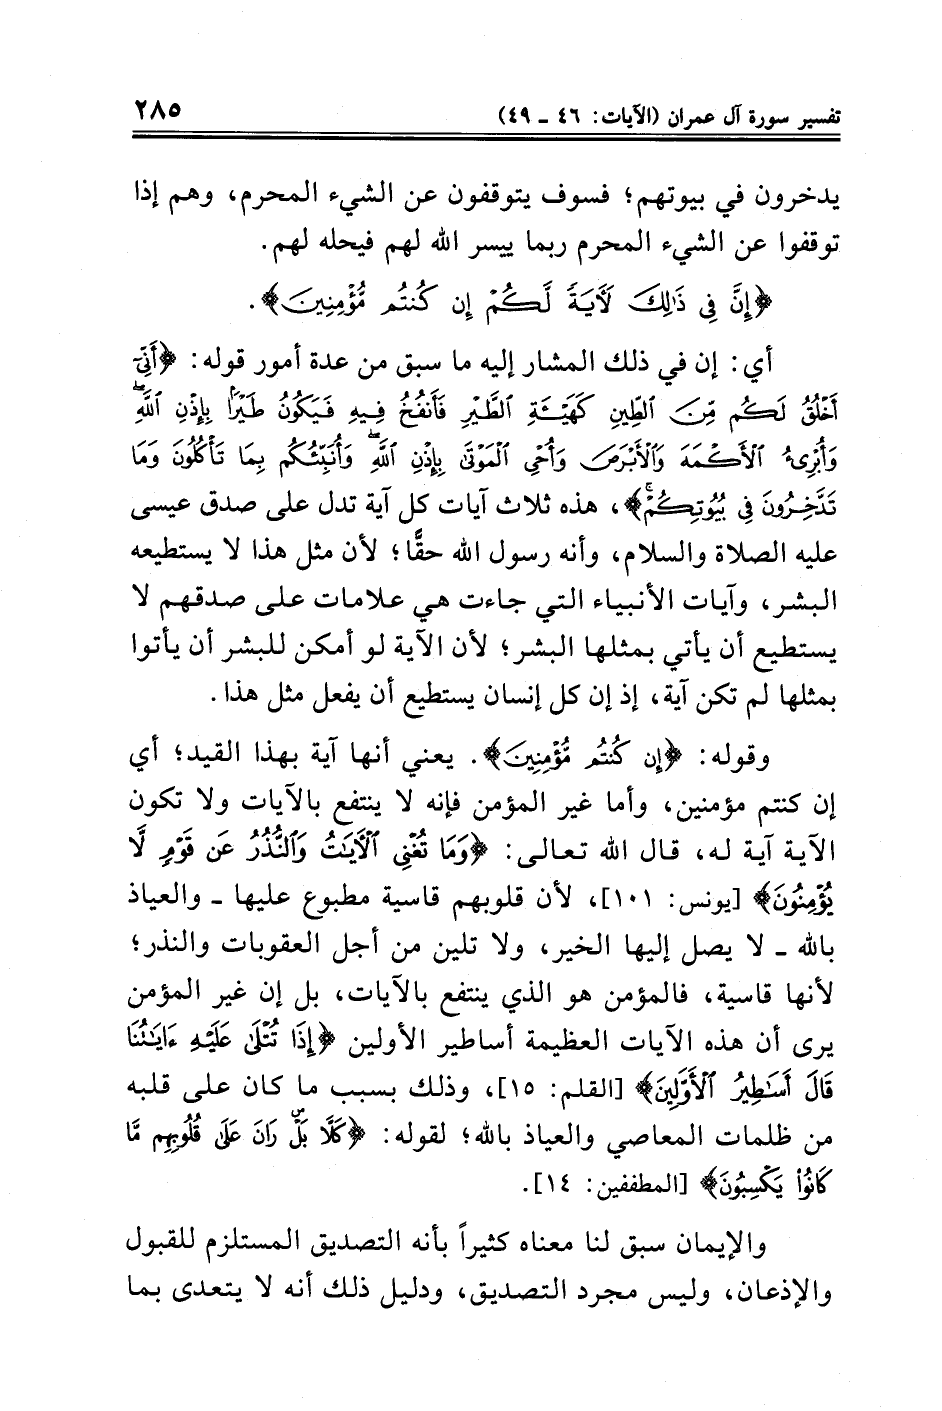 تفسير سورة آل عمران (الآيات: ٤٦ ـ ٤٩) ٢٨٥
يدخرون في بيوتهم؛ فسوف يتوقفون عن الشيء المحرم، وهم إذا
توقفوا عن الشيء المحرم ربما ييسر الله لهم فيحله لهم.
﴿إِنَّ فِي ذَٰلِكَ لَآيَةً لَّكُمْ إِن كُنتُم مُّؤْمِنِينَ﴾.
أي: إن في ذلك المشار إليه ما سبق من عدة أمور قوله: ﴿أَنِّىٓ
أَخْلُقُ لَكُم مِّنَ ٱلطِّينِ كَهَيْـَٔةِ ٱلطَّيْرِ فَأَنفُخُ فِيهِ فَيَكُونُ طَيْرًۢا بِإِذْنِ ٱللَّهِۖ
وَأُبْرِئُ ٱلْأَكْمَهَ وَٱلْأَبْرَصَ وَأُحْىِ ٱلْمَوْتَىٰ بِإِذْنِ ٱللَّهِۖ وَأُنَبِّئُكُم بِمَا تَأْكُلُونَ وَمَا
تَدَّخِرُونَ فِى بُيُوتِكُمْۚ﴾، هذه ثلاث آيات كل آية تدل على صدق عيسى
عليه الصلاة والسلام، وأنه رسول الله حقًّا؛ لأن مثل هذا لا يستطيعه
البشر، وآيات الأنبياء التي جاءت هي علامات على صدقهم لا
يستطيع أن يأتي بمثلها البشر؛ لأن الآية لو أمكن للبشر أن يأتوا
بمثلها لم تكن آية، إذ إن كل إنسان يستطيع أن يفعل مثل هذا.
وقوله: ﴿إِن كُنتُم مُّؤْمِنِينَ﴾. يعني أنها آية بهذا القيد؛ أي
إن كنتم مؤمنين، وأما غير المؤمن فإنه لا ينتفع بالآيات ولا تكون
الآية آية له، قال الله تعالى: ﴿وَمَا تُغْنِى ٱلْـَٔايَـٰتُ وَٱلنُّذُرُ عَن قَوْمٍ لَّا
يُؤْمِنُونَ﴾ [يونس: ١٠١]، لأن قلوبهم قاسية مطبوع عليها ـ والعياذ
بالله ـ لا يصل إليها الخير، ولا تلين من أجل العقوبات والنذر؛
لأنها قاسية، فالمؤمن هو الذي ينتفع بالآيات، بل إن غير المؤمن
يرى أن هذه الآيات العظيمة أساطير الأولين ﴿إِذَا تُتْلَىٰ عَلَيْهِ ءَايَـٰتُنَا
قَالَ أَسَـٰطِيرُ ٱلْأَوَّلِينَ﴾ [القلم: ١٥]، وذلك بسبب ما كان على قلبه
من ظلمات المعاصي والعياذ بالله؛ لقوله: ﴿كَلَّا بَلْۜ رَانَ عَلَىٰ قُلُوبِهِم مَّا
كَانُوا۟ يَكْسِبُونَ﴾ [المطففين: ١٤].
والإيمان سبق لنا معناه كثيراً بأنه التصديق المستلزم للقبول
والإذعان، وليس مجرد التصديق، ودليل ذلك أنه لا يتعدى بما